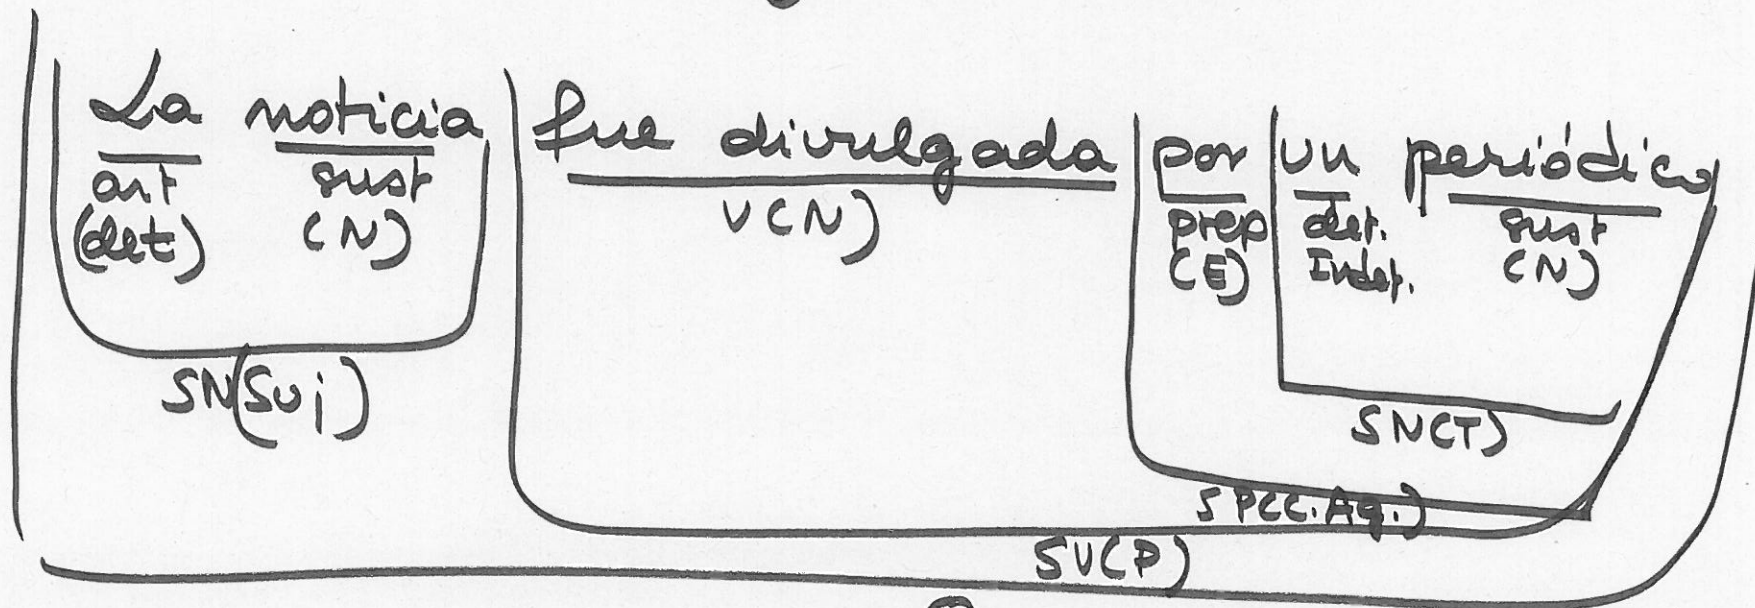 La noticia fue divulgada por un periódico
art sust V(N) prep det. sust
(det) (N) (E) Indet. (N)
SN(Suj)
SN(T)
SP(C.Ag.)
SV(P)